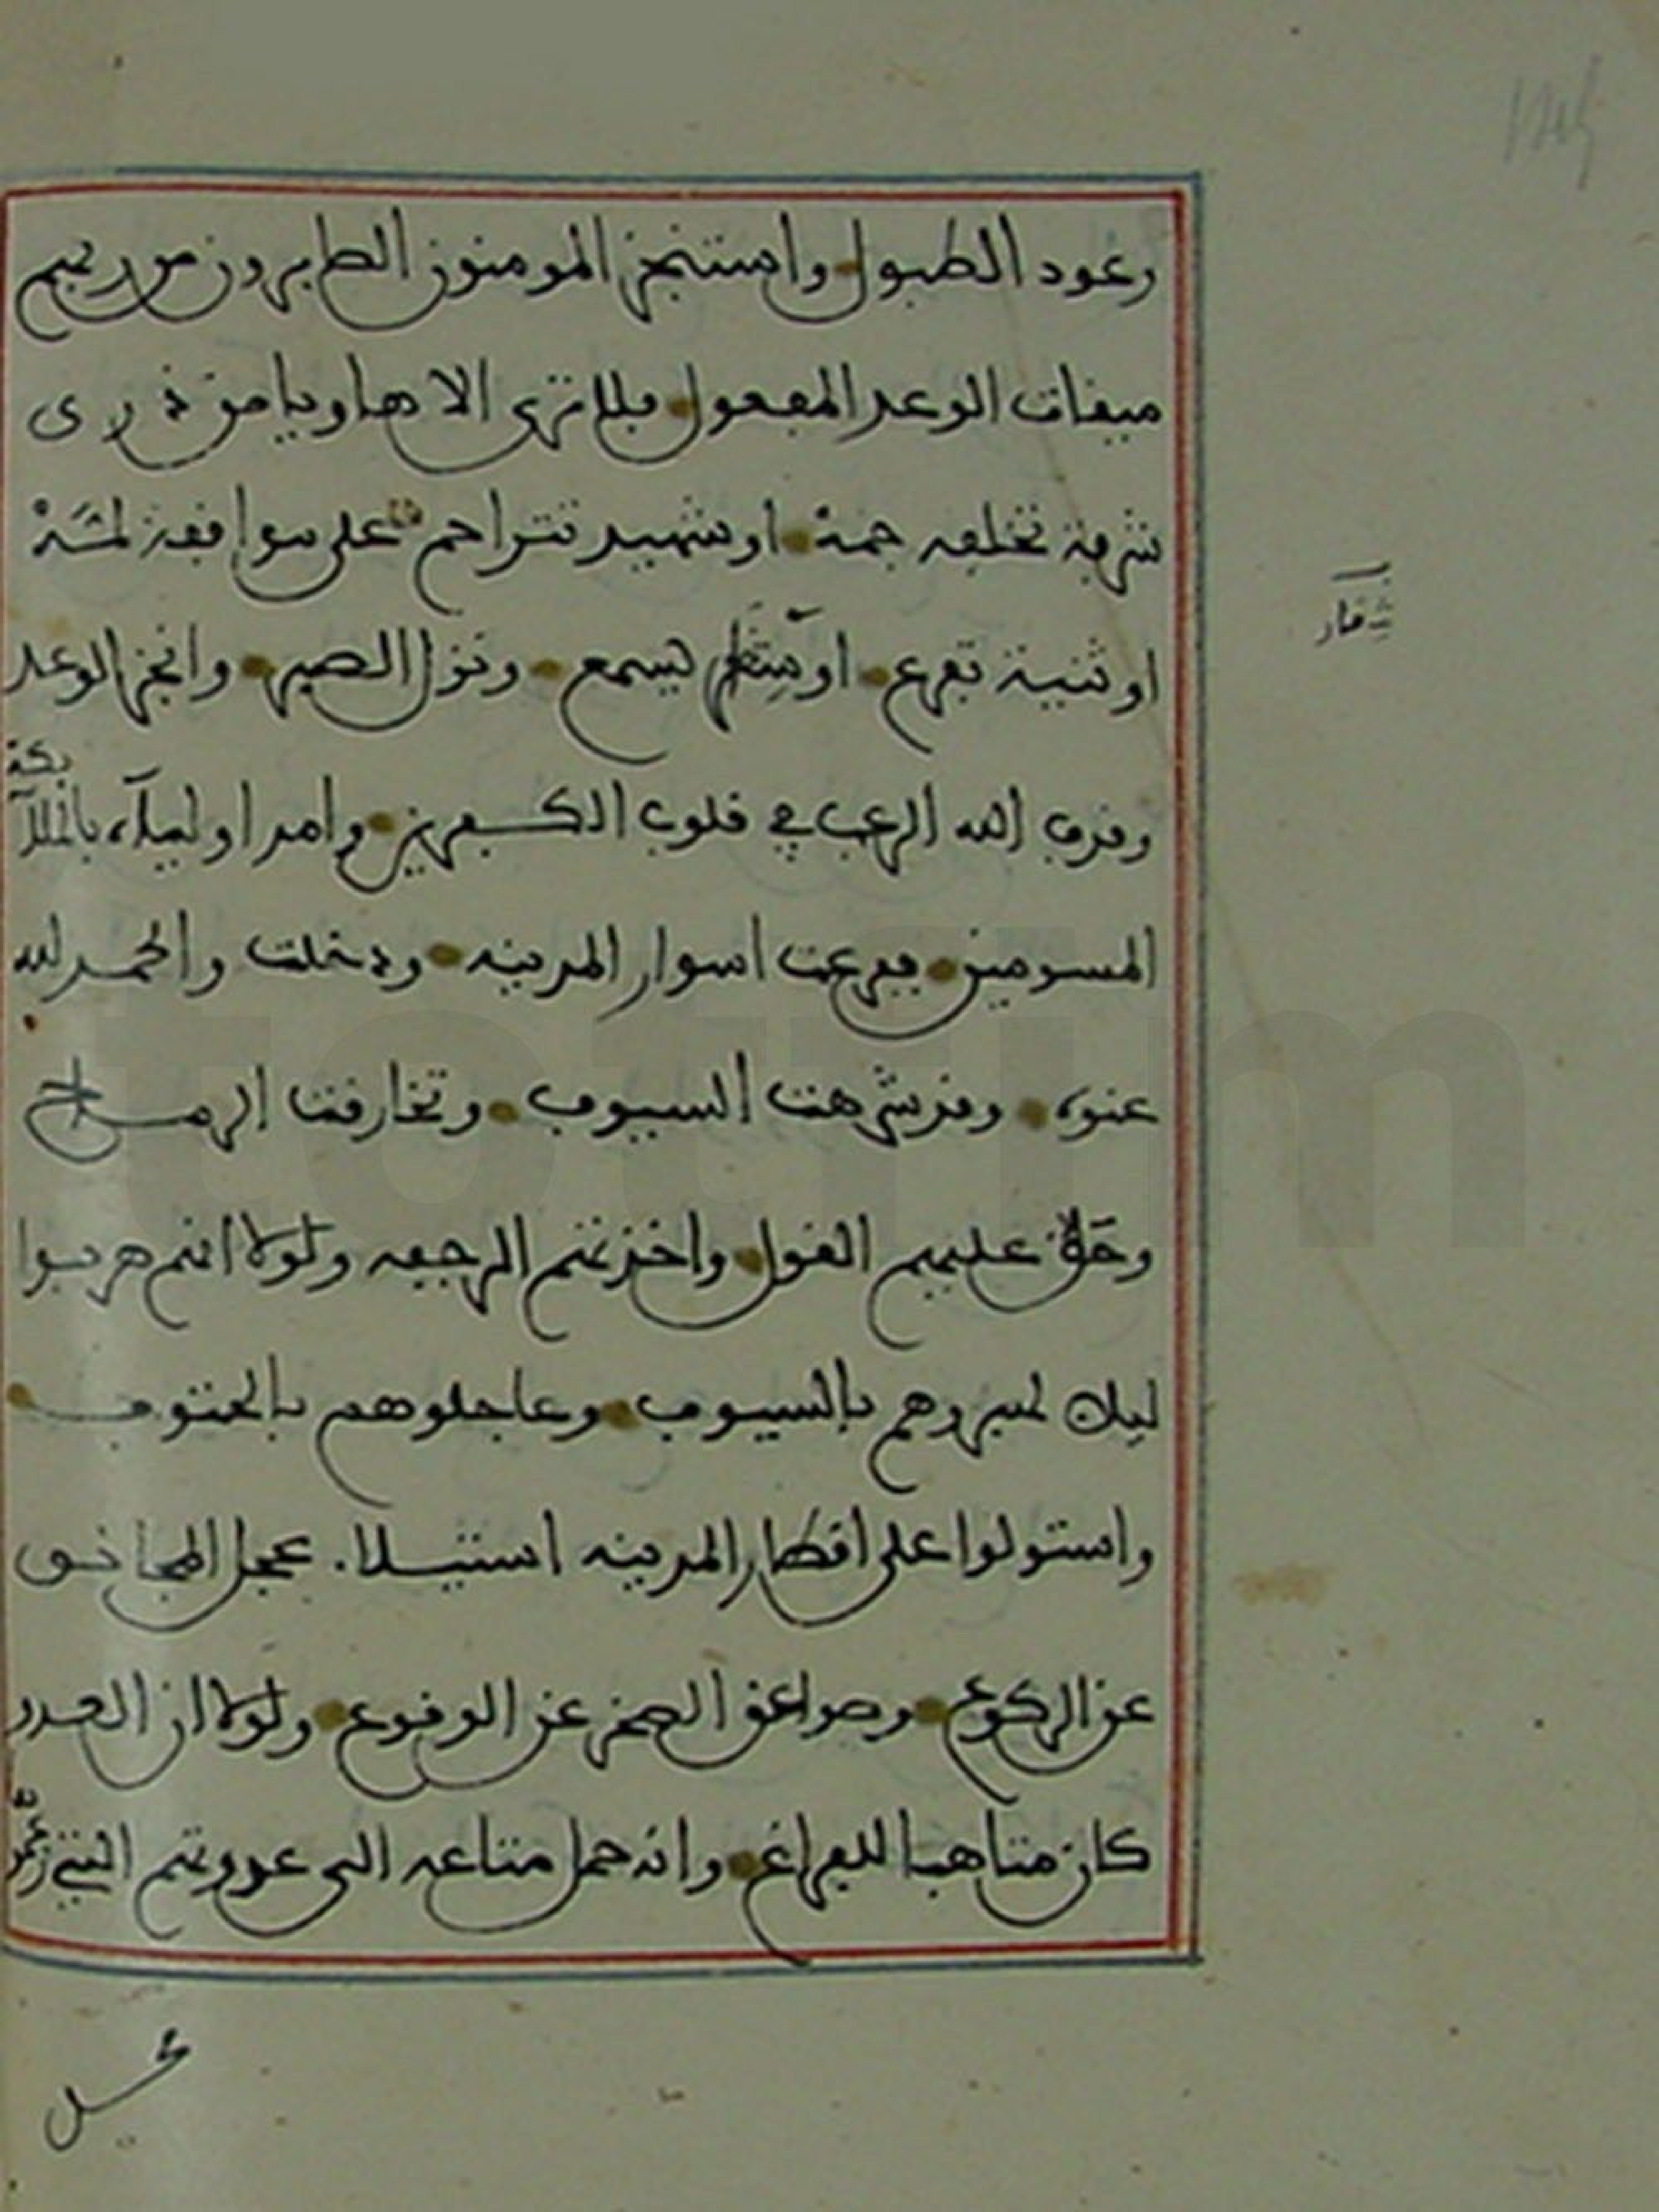 رعود الطبول واستنجز المومنون الصابرون من ربهم
ميقات الوعد المفعول فلا ترى الا هاويا من ذرى
شرفة تخلفه جمة او شهيد تتزاحم على
ثقار
او ثنية تفرع او سلم يسمع ونزل الصبر وانجز الوعد
وقذف الله الرعب في قلوب الكفرين وامد اولياءه بالملائكة
المسومين ففرعت اسوار المدينه ودخلت والحمد لله
عنوه وقد شرهت السيوف وتخارقت الرماح
وحق عليهم القول واخذتهم الرجفه ولولا انهم هربوا
ليلا لحسروهم بالسيوف وعاجلوهم بالحتوف
واستولوا على اقطار المدينه استيلا. عجل المجانق
عن الركوع وصواعق الصخر عن الوقوع ولولا ان العدو
كان متاهبا للفراغ وانه حمل متاعه الى عدوتهم التي